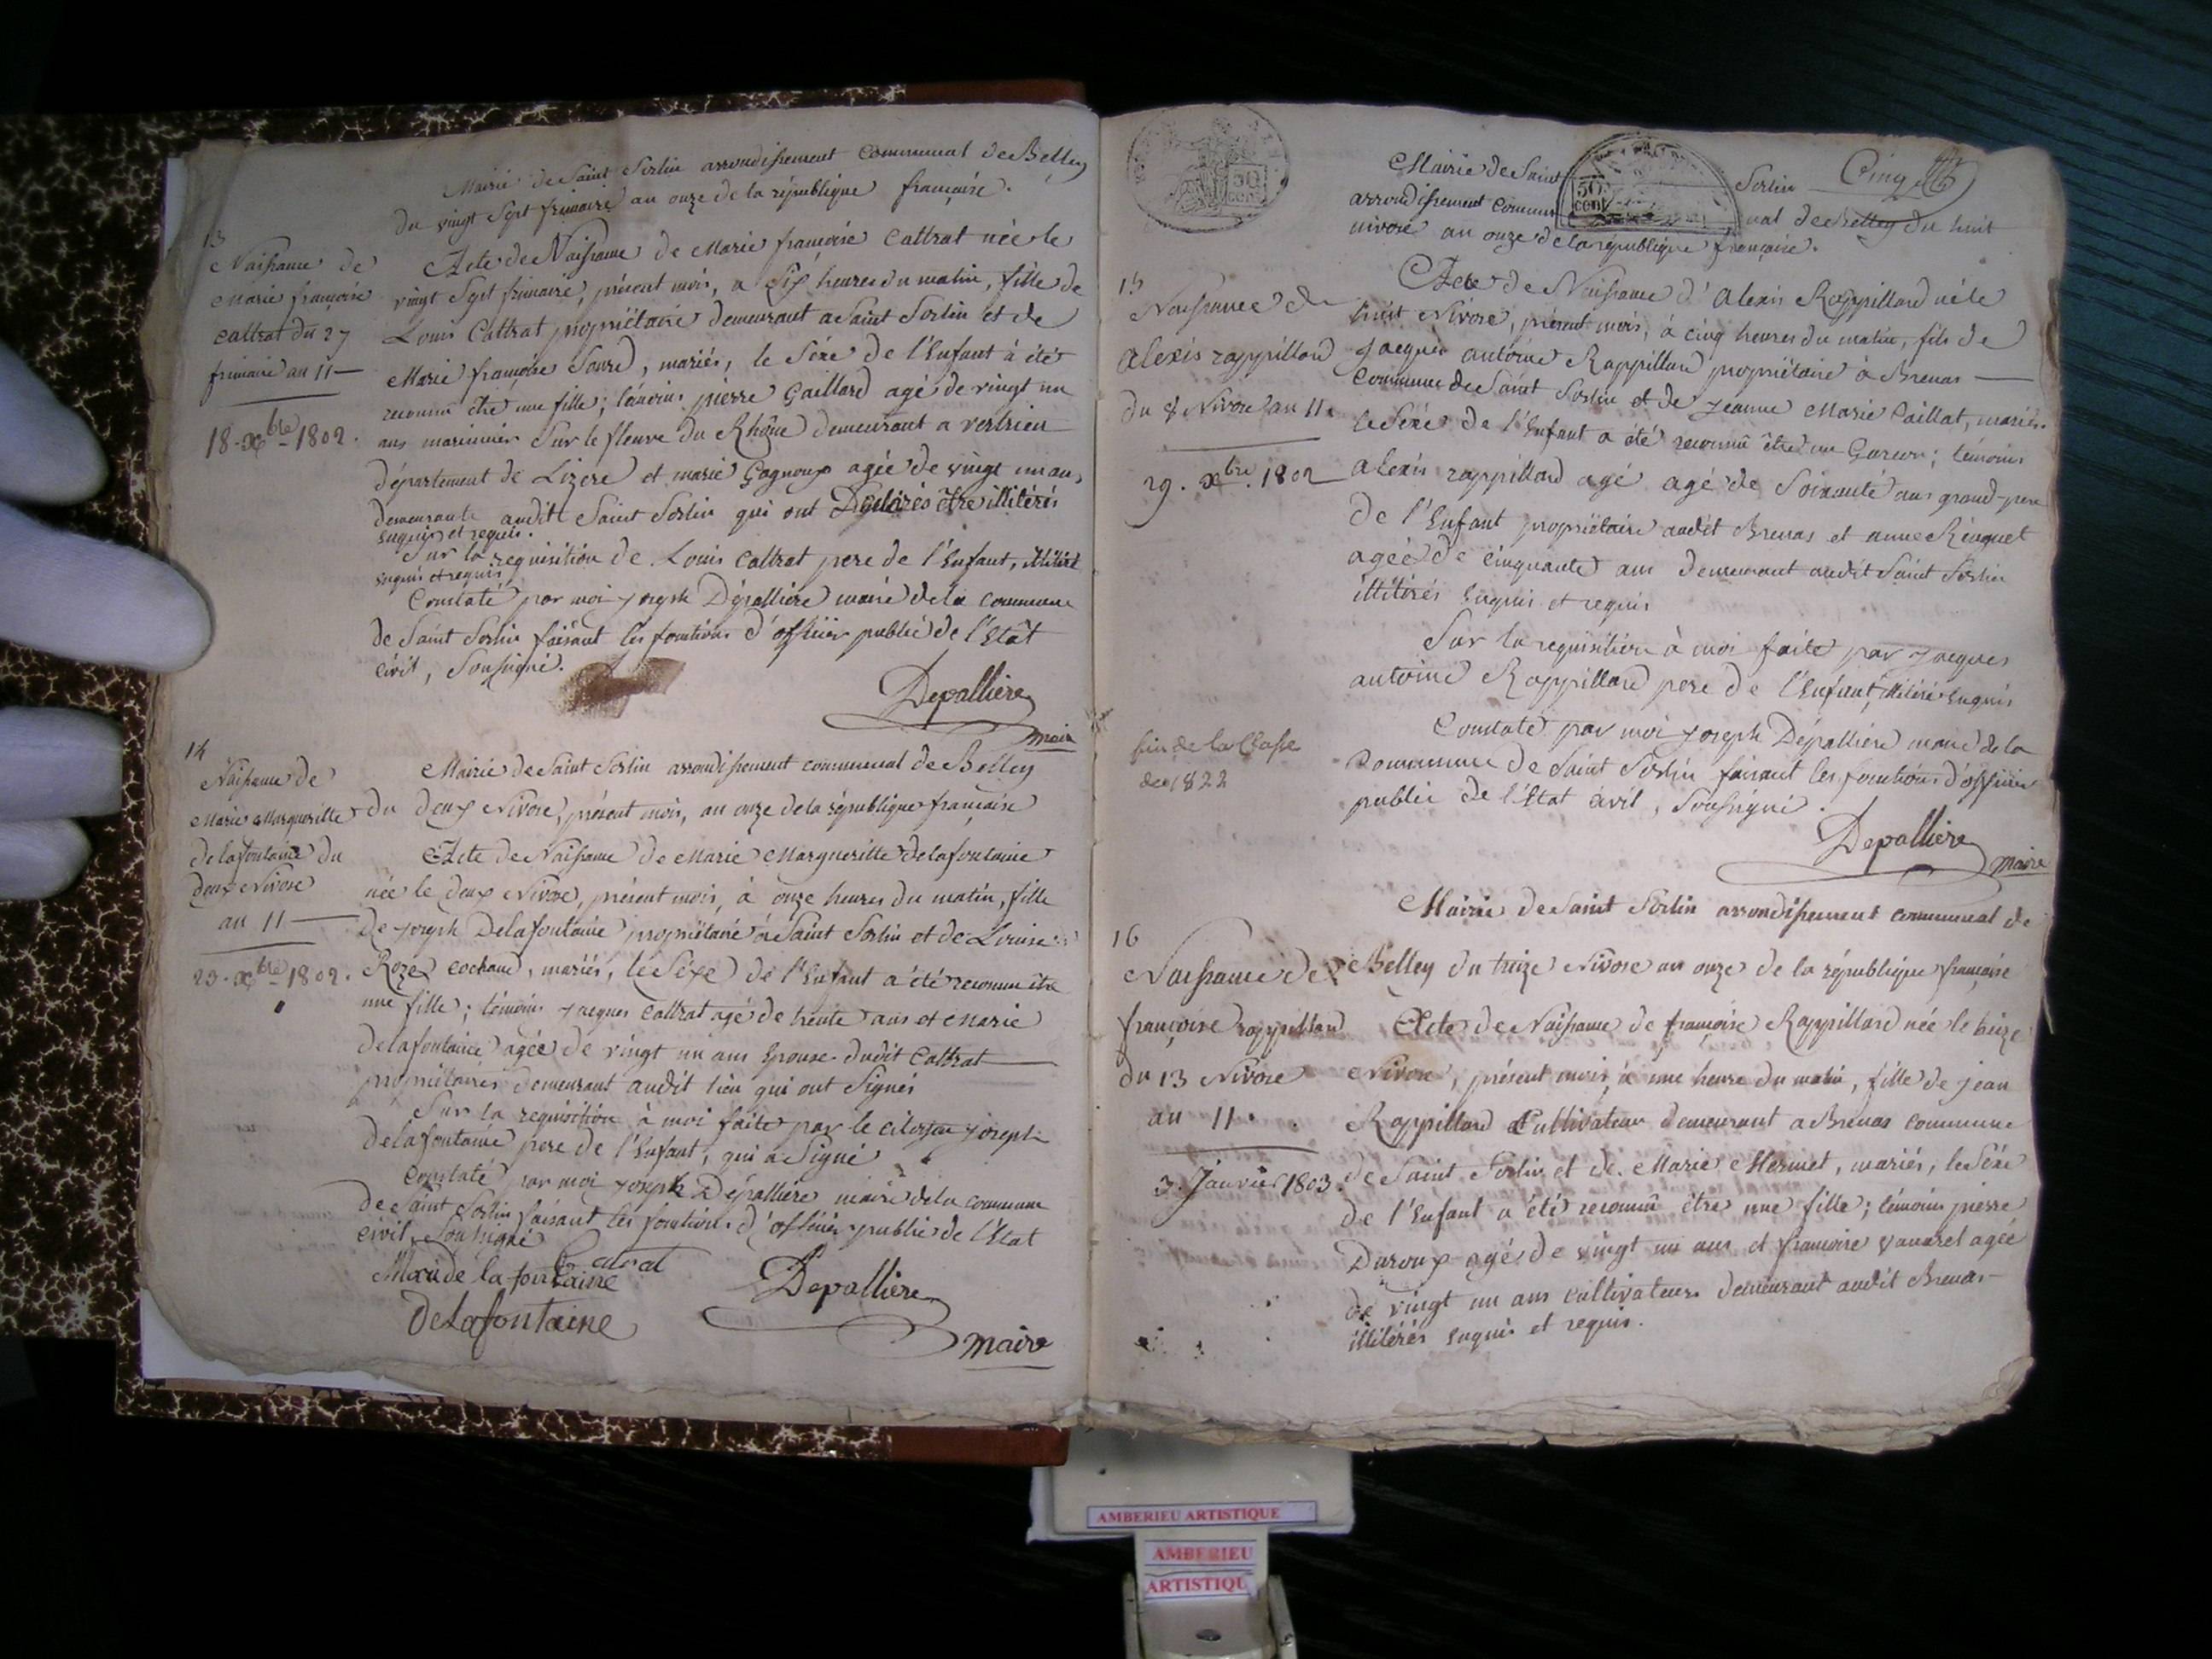 Mairie de Saint Sorlin arrondissement communal de Belley
du vingt Sept frimaire an onze de la république française.
13
Naissance de
Marie françoise
Cattrat du 27
frimaire an 11
18. xbre 1802.
Acte de Naissance de Marie françoise Cattrat née le
vingt Sept frimaire, présent mois, a Six heures du matin, fille de
Louis Cattrat propriétaire demeurant a Saint Sorlin et de
Marie françoise Sourd, mariés, le Séxe de l'Enfant à été
reconnu être une fille; témoins pierre Gaillard agé de vingt un
ans marinnier Sur le fleuve du Rhône demeurant a vertrieu
département de Lizere et marie Gagnoux agée de vingt un ans
demeurante audit Saint Sorlin qui ont Déclarés être illitérés
enquis et requis.
Sur la requisition de Louis Cattrat pere de l'Enfant, illitéré
enquis et requis
Constaté par moi joseph Dépallière maire de la commune
de Saint Sorlin faisant les fonctions d'officier public de l'Etât
civil, Soussigné.
Depallière
maire
14
Naissance de
Marie Marguerille
delafontaine du
deux Nivose
an 11
23. xbre 1802.
Mairie de Saint Sorlin arrondissement communal de Belley
du deux Nivose, présent mois, an onze de la république française
Acte de Naissance de Marie Marguerille delafontaine
née le deux Nivose, présent mois, à onze heures du matin, fille
de joseph Delafontaine propriétaire à Saint Sorlin et de Louise
Roze cochand, mariés, le Séxe de l'Enfant a été reconnu être
une fille; témoins jacques Cattrat agé de trente ans et Marie
delafontaine agée de vingt un ans Epouse dudit Cattrat
propriétaires demeurant audit lieu qui ont Signés
Sur la requisition à moi faite par le citoyen joseph
delafontaine pere de l'Enfant, qui a Signé
Constaté par moi joseph Dépallière maire de la commune
de Saint Sorlin faisant les fonctions d'officier public de l'Etat
civil, Soussigné
Catrat
Marie de la fontaine
Depallière
DeLafontaine
maire
50 cent
50 cent
Cinq
Mairie de Saint Sorlin
arrondissement communal de Belley du huit
nivose an onze de la république française.
15
Naissance de
alexis rappillard
du 8 Nivose an 11.
29. xbre 1802
Acte de Naissance d'Alexis Rappillard né le
huit Nivose, présent mois, à cinq heures du matin, fils de
Jacques antoine Rappillard propriétaire à Brenas
Commune de Saint Sorlin et de jeanne Marie Caillat, mariés.
le Séxe de l'Enfant a été reconnu être un Garcon; témoins
alexis rappillard agé agé de Soixante ans grand-pere
de l'Enfant propriétaire audit Brenas et anne Rinquet
agée de cinquante ans demeurant audit Saint Sorlin
illitérés enquis et requis
Sur la requisition à moi faite par jacques
antoine Rappillard pere de l'Enfant, illitéré enquis
Constaté par moi joseph Dépallière maire de la
Commune de Saint Sorlin faisant les fonctions d'officier
public de l'Etat civil, Soussigné.
fin de la Classe
de 1822
Depallière
maire
16
Naissance de
françoise rappillard
du 13 Nivose
an 11.
3. Janvier 1803.
Mairie de Saint Sorlin arrondissement communal de
Belley du treize Nivose an onze de la république française
Acte de Naissance de françoise Rappillard née le treize
Nivose, présent mois, à une heure du matin, fille de jean
Rappillard Cultivateur demeurant a Brenas commune
de Saint Sorlin et de Marie Mermet, mariés, le Séxe
de l'Enfant a été reconnu être une fille; témoins pierre
Duroux agé de vingt un ans et françoise vauaret agée
de vingt un ans cultivateurs demeurant audit Brenas
illitérés enquis et requis.
AMBERIEU ARTISTIQUE
AMBERIEU
ARTISTIQU